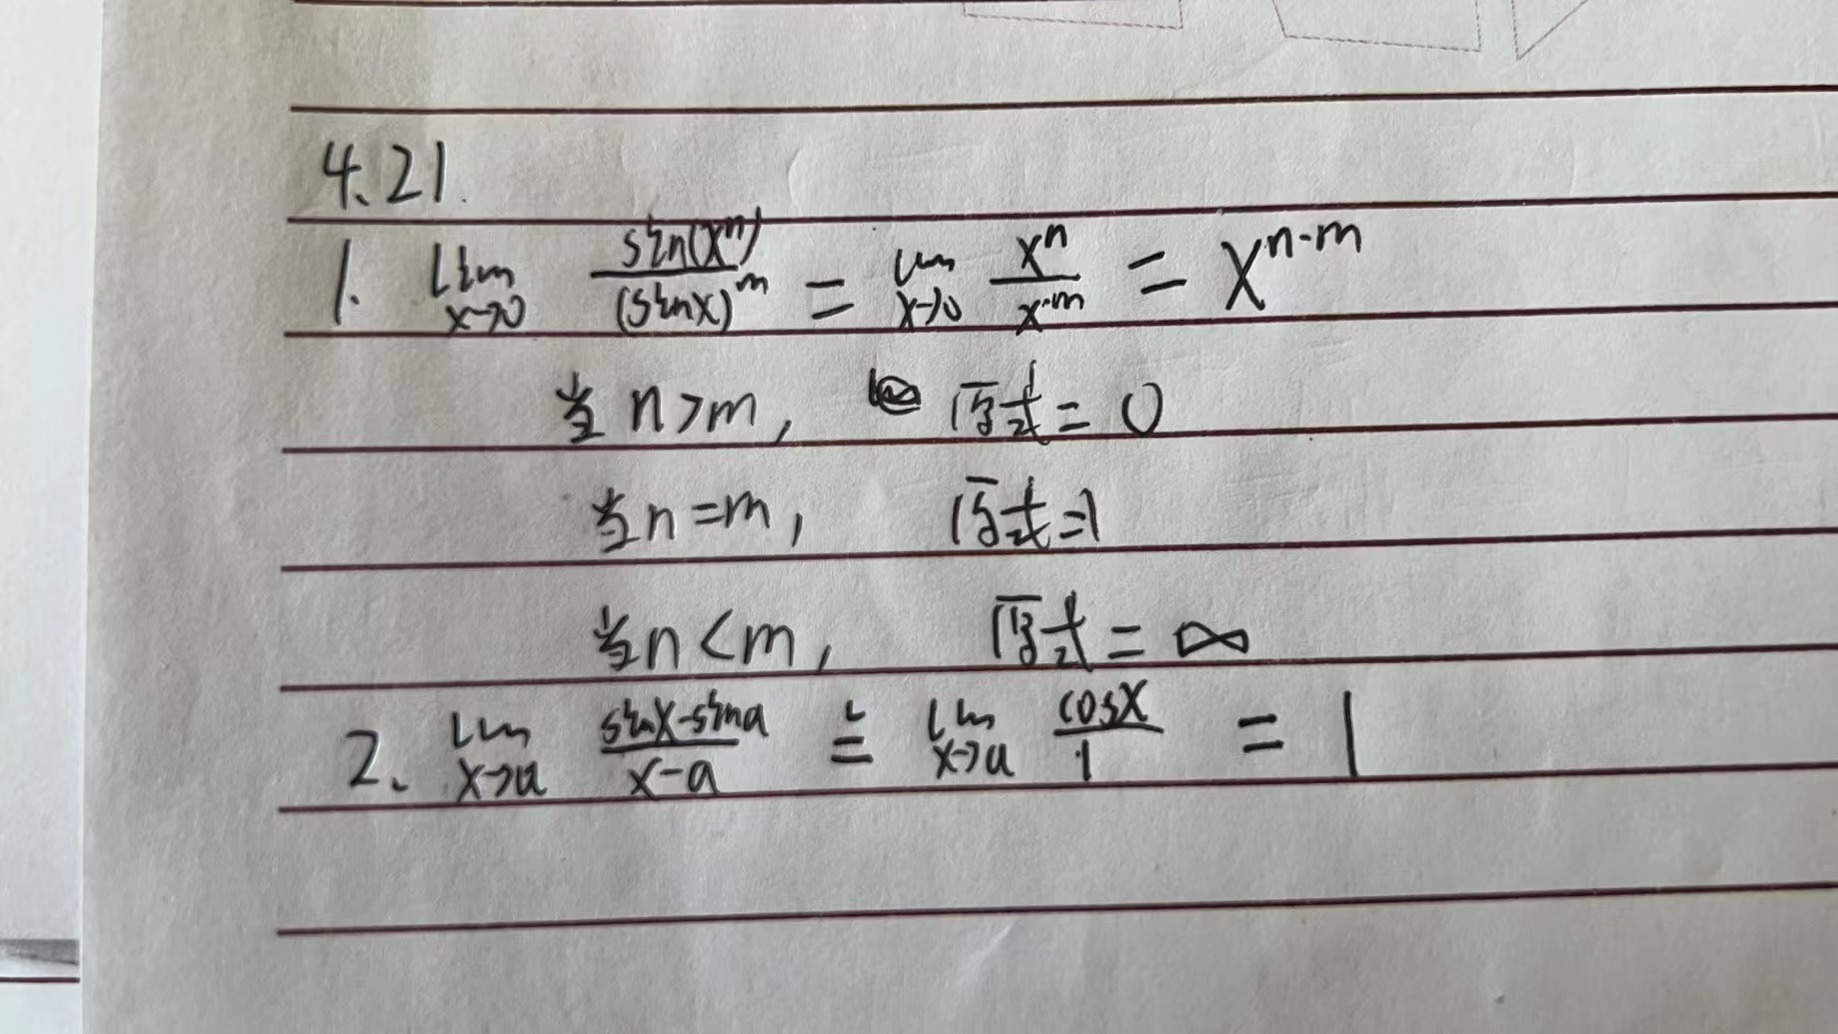 4.21.
1. lim x→0 sin(xⁿ)/(sinx)ᵐ = lim x→0 xⁿ/xᵐ = xⁿ⁻ᵐ
当 n>m, 原式=0
当n=m, 原式=1
当n<m, 原式=∞
2. lim x→a (sinx-sina)/(x-a) =ᴸ lim x→a cosx/1 = 1